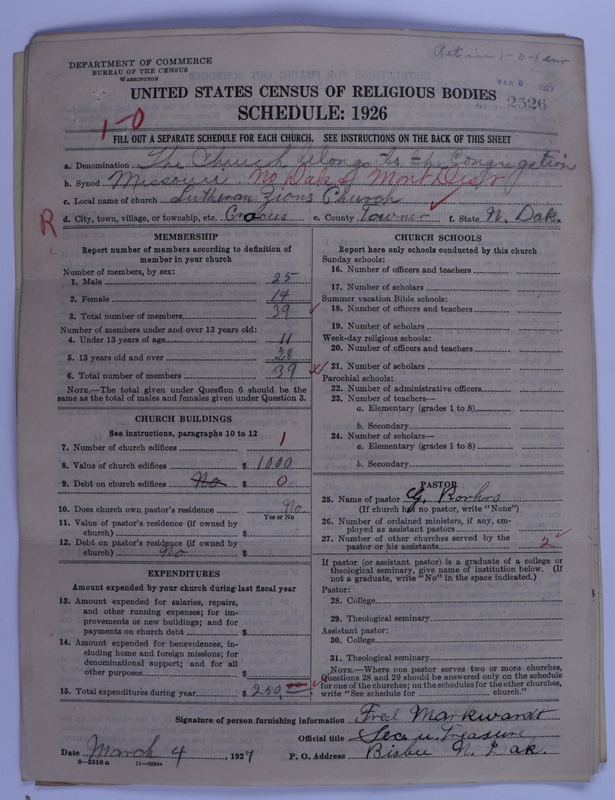 Ret in 1-0-1 enr
DEPARTMENT OF COMMERCE
BUREAU OF THE CENSUS
WASHINGTON
MAR 8 1927
2526
UNITED STATES CENSUS OF RELIGIOUS BODIES
SCHEDULE: 1926
1-0
FILL OUT A SEPARATE SCHEDULE FOR EACH CHURCH. SEE INSTRUCTIONS ON THE BACK OF THIS SHEET
a. Denomination The Church belongs to the Congregation
b. Synod Missouri. No Dak & Mont Distr
c. Local name of church Lutheran Zions Church
R
d. City, town, village, or township, etc. Crocus e. County Towner f. State N. Dak.
MEMBERSHIP
Report number of members according to definition of member in your church
Number of members, by sex:
1. Male 25
2. Female 14
3. Total number of members 39
Number of members under and over 13 years old:
4. Under 13 years of age 11
5. 13 years old and over 28
6. Total number of members 39
NOTE.—The total given under Question 6 should be
same as the total of males and females given under Question 3.
CHURCH BUILDINGS
See instructions, paragraphs 10 to 12
7. Number of church edifices 1
8. Value of church edifices $ 1000
9. Debt on church edifices No $ 0
10. Does church own pastor's residence No
Yes or No
11. Value of pastor's residence (if owned by
church) $
12. Debt on pastor's residence (if owned by
church) No $
EXPENDITURES
Amount expended by your church during last fiscal year
13. Amount expended for salaries, repairs,
and other running expenses; for im-
provements or new buildings; and for
payments on church debt $
14. Amount expended for benevolences, in-
cluding home and foreign missions; for
denominational support; and for all
other purposes $
15. Total expenditures during year $ 250
CHURCH SCHOOLS
Report here only schools conducted by this church
Sunday schools:
16. Number of officers and teachers
17. Number of scholars
Summer vacation Bible schools:
18. Number of officers and teachers
19. Number of scholars
Week-day religious schools:
20. Number of officers and teachers
21. Number of scholars
Parochial schools:
22. Number of administrative officers
23. Number of teachers—
a. Elementary (grades 1 to 8)
b. Secondary
24. Number of scholars—
a. Elementary (grades 1 to 8)
b. Secondary
PASTOR
25. Name of pastor G. Rohrs
(If church has no pastor, write "None")
26. Number of ordained ministers, if any, em-
ployed as assistant pastors
27. Number of other churches served by the
pastor or his assistants 2
If pastor (or assistant pastor) is a graduate of a college or
theological seminary, give name of institution below. (If
not a graduate, write "No" in the space indicated.)
Pastor:
28. College
29. Theological seminary
Assistant pastor:
30. College
31. Theological seminary
NOTE.—Where one pastor serves two or more churches,
Questions 28 and 29 should be answered only on the schedule
for one of the churches; on the schedules for the other churches,
write "See schedule for church."
Signature of person furnishing information Fred Markwardt
Official title Sec u. Treasure
Date March 4, 1927 P. O. Address Bisbee N. Dak.
8-5518a